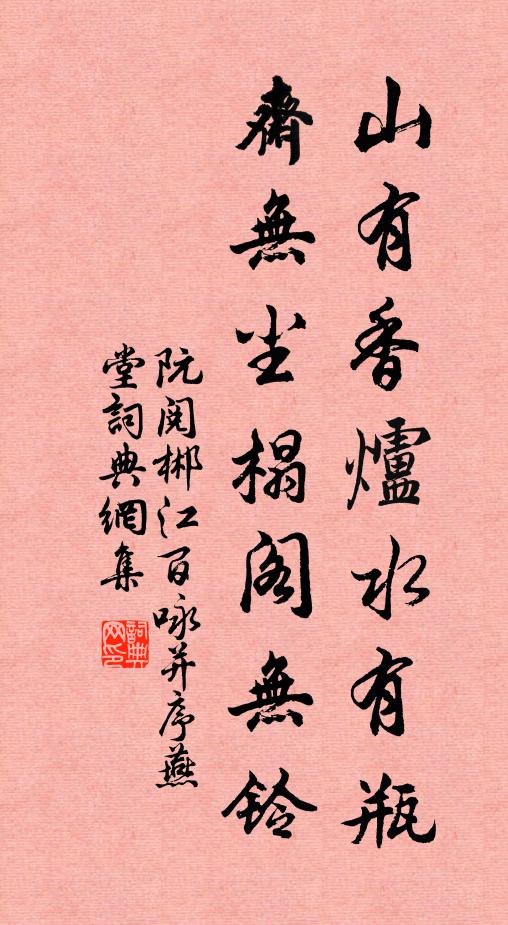 山有香爐水有瓶
齋無尘榻阁無铃
阮阅郴江百咏并序燕
堂詞典網集
詞典网印